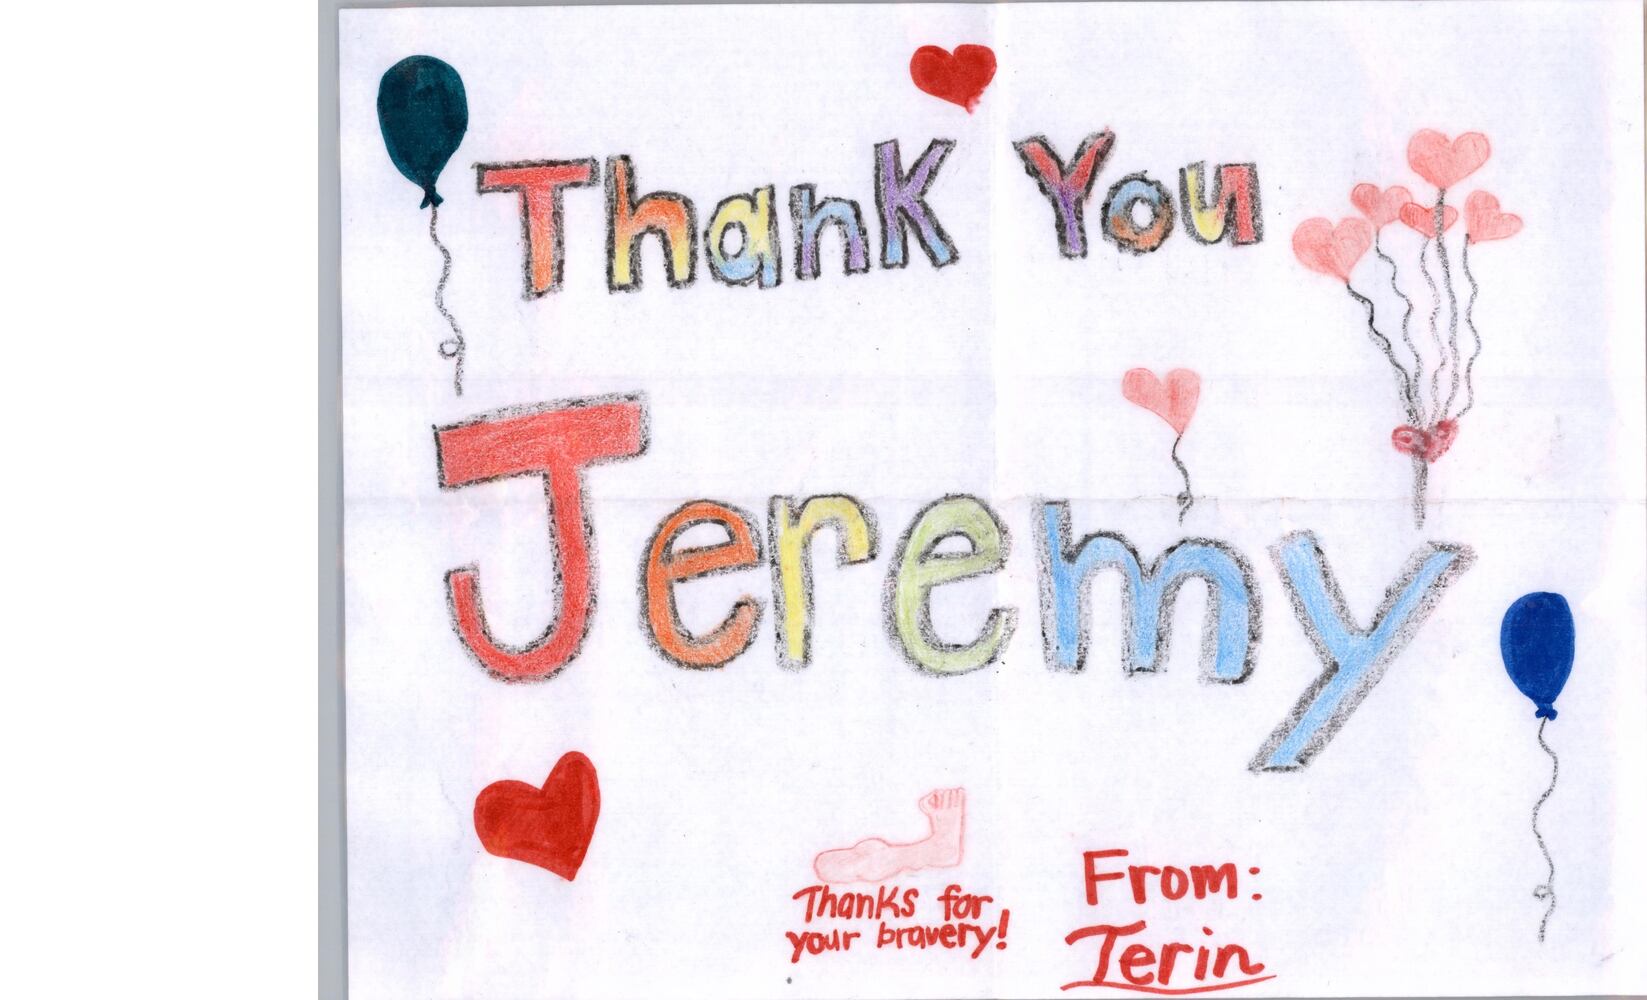 Thank You
Jeremy
Thanks for
your bravery!
From:
Terin